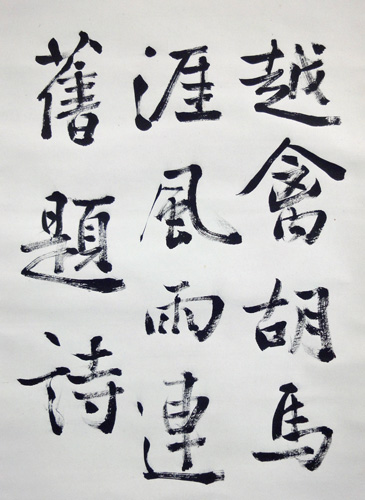 越禽胡馬
涯風雨連
舊題詩